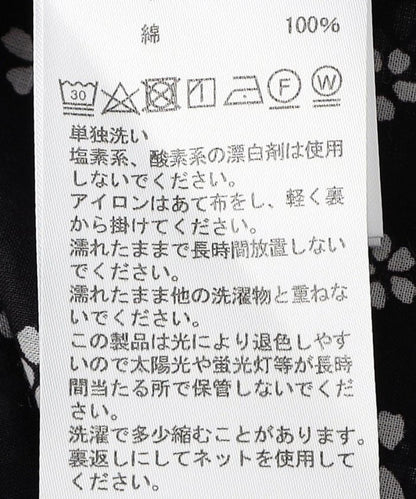 綿 100%
30 F W
単独洗い
塩素系、酸素系の漂白剤は使用
しないでください。
アイロンはあて布をし、軽く裏
から掛けてください。
濡れたままで長時間放置しない
でください。
濡れたまま他の洗濯物と重ねな
いでください。
この製品は光により退色しやす
いので太陽光や蛍光灯等が長時
間当たる所で保管しないでくだ
さい。
洗濯で多少縮むことがあります。
裏返しにしてネットを使用して
ください。